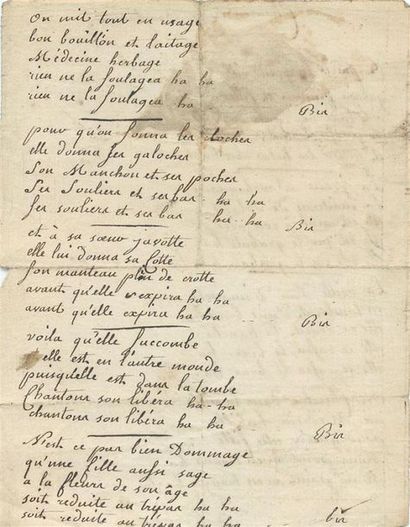 On mit tout en usage
bon bouillon et laitage
Médecine herbage
rien ne la soulagea ha ha
rien ne la soulagea ha - Bis
pour qu'on sonna les cloches
elle donna ses galoches
Son Manchon et ses poches
Ses Souliers et ses bas - ha ha
ses souliers et ses bas ha-ha Bis
et à sa sœur javotte
elle lui donna sa Cotte
son manteau plein de crotte
avant qu'elle expira ha ha
avant qu'elle expira ha ha Bis
voila qu'elle succombe
elle est en l'autre monde
puisqu'elle est dans la tombe
Chantons son libéra ha-ha
chantons son libéra ha ha Bis
N'est ce pas bien Dommage
qu'une fille aussi sage
a la fleur de son âge
soit reduite au trepas ha ha
soit reduite au trepas ha ha bis